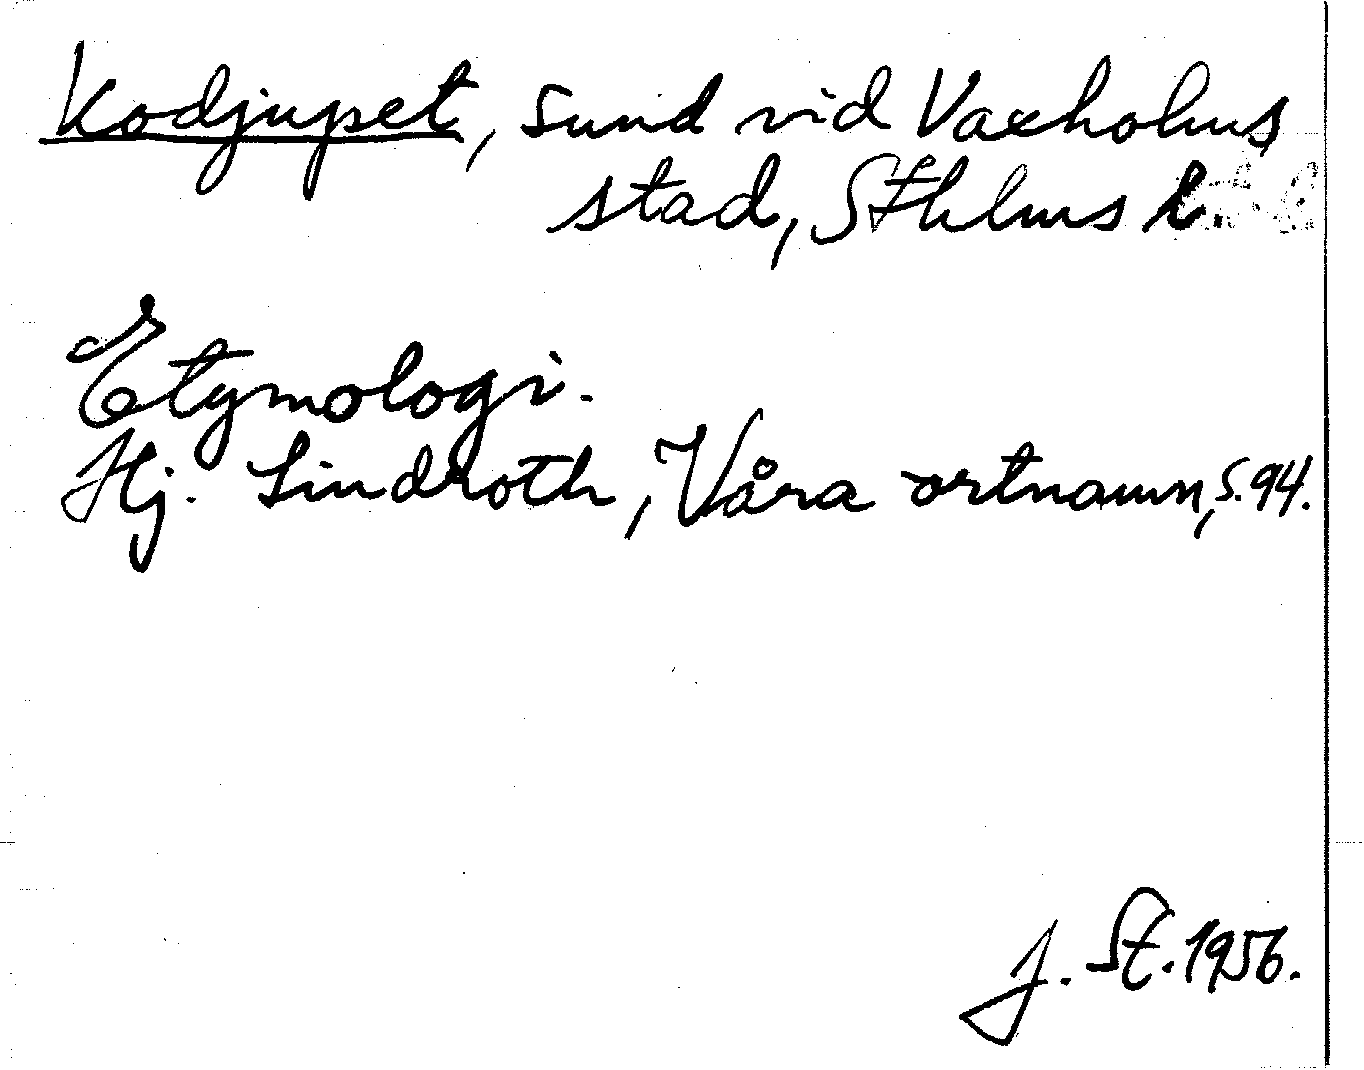 Kodjupet, sund vid Vaxholms
stad, Sthlms l.
Etymologi.
Hj. Lindroth, Våra ortnamn, s. 94.
J. St. 1956.